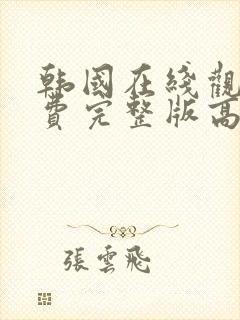 韩國在綫觀
費完整版高
張雲飛